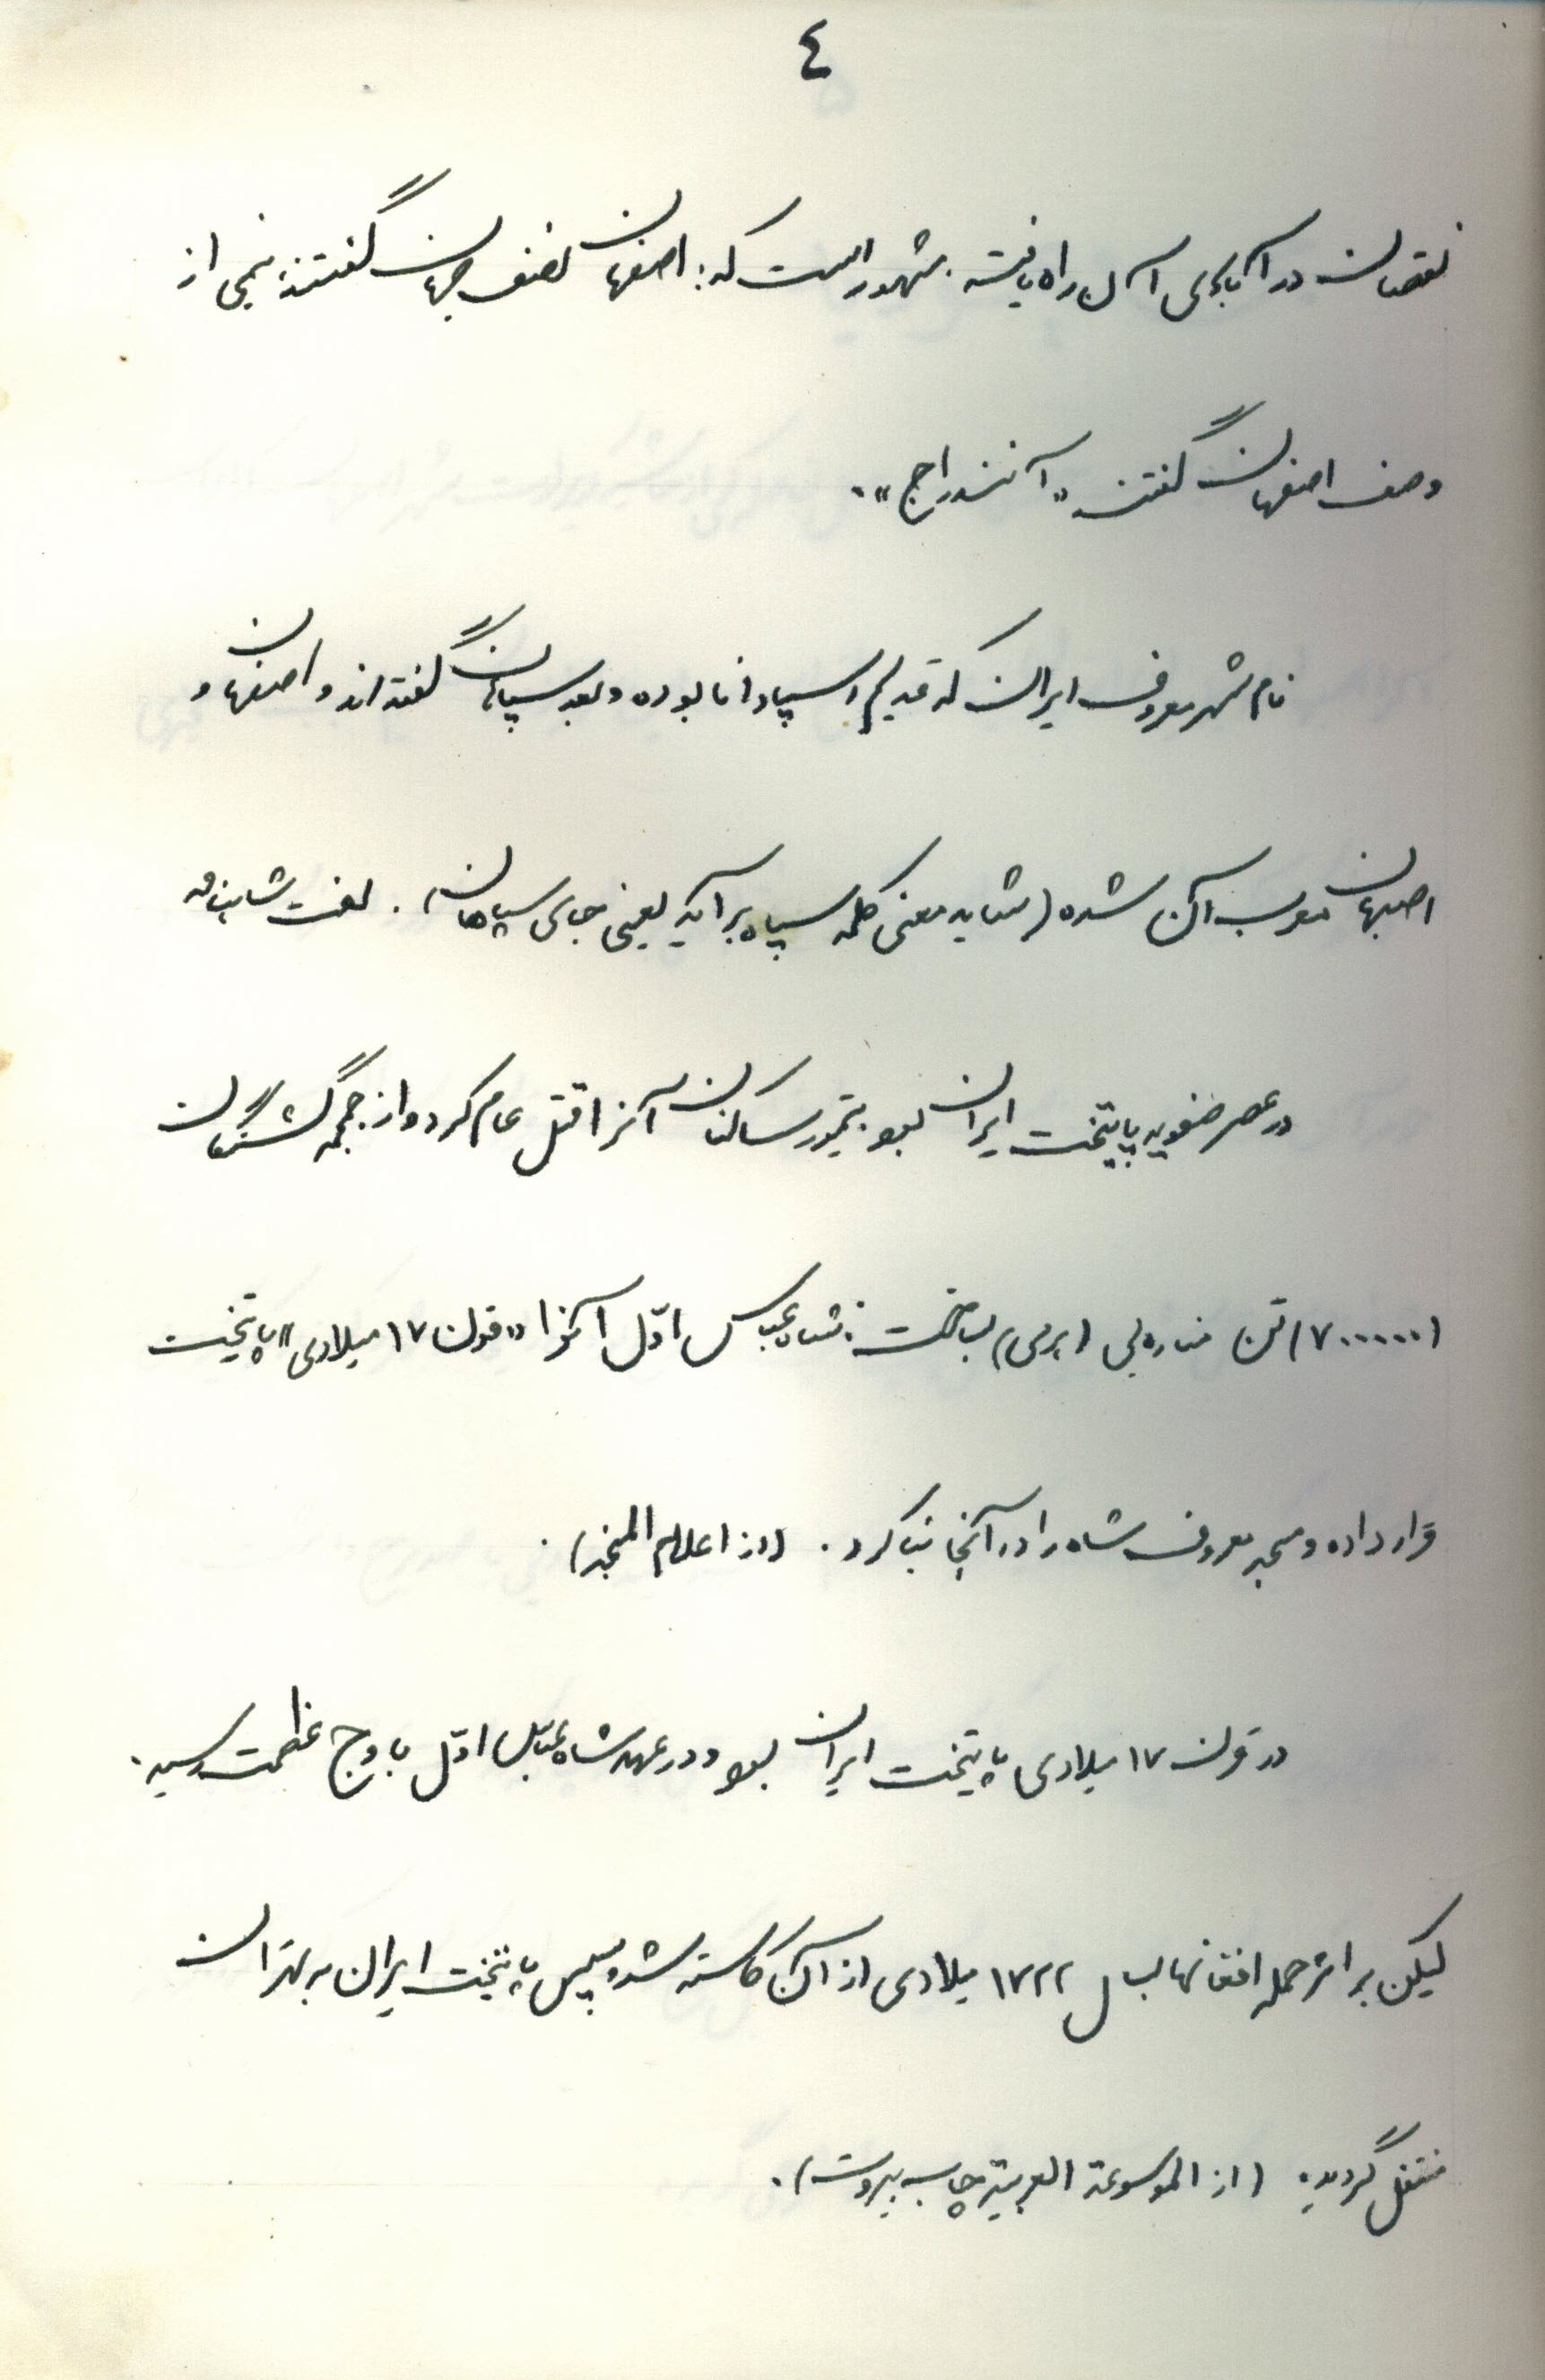 ٤
نقصان در آبادی آن راه یافته. مشهور است که: اصفهان نصف جهان گفتند نیمی از
وصف اصفهان گفتند «آنندراج».
نام شهر معروف ایران که قدیم اسپادانا بوده و بعد سپاهان گفته‌اند و اصفهان و
اصبهان معرب آن شده (شاید معنی کلمه سپاه برآید یعنی جای سپاهان). لغت شاهنامه
در عصر صفویه پایتخت ایران بود. تیمور ساکنان آنرا قتل عام کرد و از جمجمه کشتگان
(۷۰۰۰۰۰۰) تن مناره‌یی (برجی) بساخت. شاه عباس اوّل آنرا «قرن ۱۷ میلادی» پایتخت
قرار داده و مسجد معروف شاه را در آنجا بنا کرد. (از اعلام المنجد).
در قرن ۱۷ میلادی پایتخت ایران بود و در عهد شاه عباس اوّل باوج عظمت رسید.
لیکن بر اثر حمله افغانها بسال ۱۷۲۲ میلادی از آن کاسته شد و سپس پایتخت ایران به تهران
منتقل گردید. (از الموسوعة العربیة چاپ بیروت).